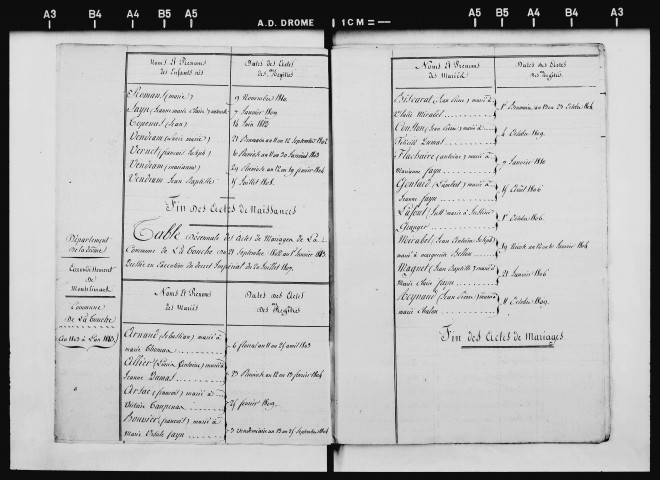 A3 B4 A4 B5 A5 A.D. DROME 1 CM = A5 B5 A4 B4 A3
Noms Et Prenoms des Enfants nés
Dates des Actes des Registres
Romans (marie) 9 Novembre 1810.
Fayn (Jeanne marie 7 Janvier 1809
(Jean) 14 Juin 1812
Vendram (Louis marie) 21 Brumaire an 11 ou 12 1802
Vernet (françois Joseph) 6 Pluviose an 11 ou 20 Janvier 1803
Vendram (marianne) 29 Pluviose an 12 ou 19 février 1804
Vendram Jean Baptiste 15 Juillet 1808.
Fin des Actes de Naissances
Département de la drôme
Arrondissement de Montélimart
Commune De La Touche
An 1802 à L'an 1813
Table Décennale des Actes de Mariages de La
Commune de La touche du 21 Septembre 1802 au 1er Janvier 1813.
Dressée en Execution du decret Impérial du 20 Juillet 1807.
Noms Et Prenoms des Mariés
Dates des Actes des Registres
Arnaud (Sebastian) marié à
marie 6 floreal an 11 ou 25 avril 1803
Allier (Louis Antoine) marié à
Jeanne Dumas 23 Pluviose an 12 ou 13 février 1804
Arsac (françois) marié à
Victoire 25 février 1809.
Bouvier (françois) marié à
Marie Vidale fayn 3 Vendemiaire an 13 ou 25 Septembre 1804
Noms Et Prenoms des Mariés
Dates des Actes des Registres
Biscarat (Jean Pierre) marié à
Vidale Mirabel 1er Brumaire an 13 ou 23 Octobre 1804
Couston (Jean Pierre) marié à
Félicité Dumas 4 Octobre 1809.
Flachaire (antoine) marié à
Marianne fayn 9 Janvier 1810
Gontard (Lambert) marié à
Jeanne fayn 15 Aout 1806
Lafont marié à Justine
Granger 1er Octobre 1806.
Mirabel (Jean Antoine Joseph)
marié à marguerite Bellon 19 Nivose an 12 ou 10 Janvier 1804
Magnet (Jean Baptiste) marié à
Marie Claire fayn 21 Janvier 1806
Reynaud (Jean Pierre) marié à
marie Chalon 11 Octobre 1809.
Fin des Actes de Mariages